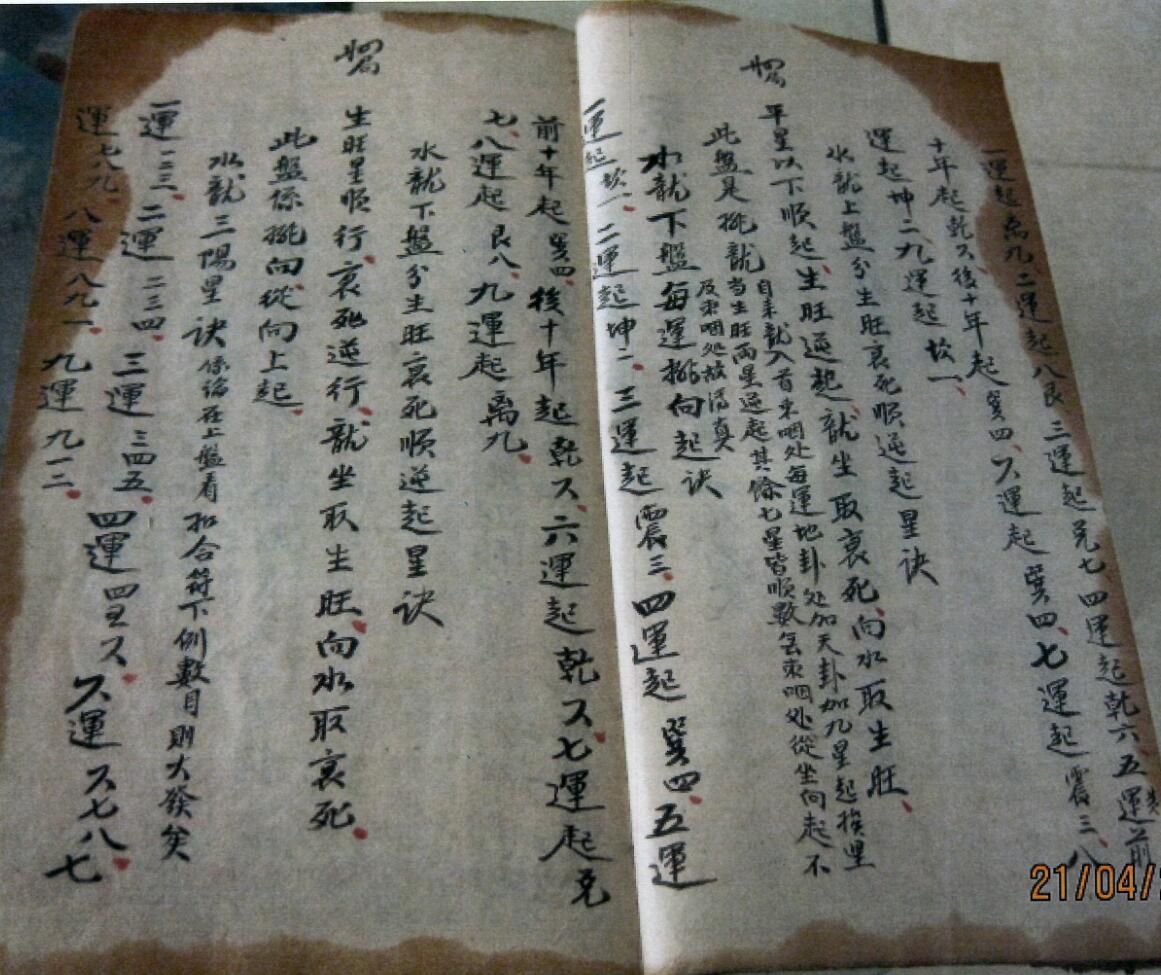 一運起離九、二運起八艮、三運起兌七、四運起乾六、五運前
十年起乾六、後十年起巽四、六運起巽四、七運起震三、八
運起坤二、九運起坎一、
水龍上盤分生旺衰死順逆起星訣
年星以下順起、生旺逆起、龍坐取衰死、向水取生旺、
此盤是挨龍
自来龍入首束咽处每運地卦处加天卦加九星起挨里
當生旺両星逆起其餘七星皆順數無束咽处從坐向起不
及束咽处故清真
水龍下盤每運挨向起訣
一運起坎一、二運起坤二、三運起震三、四運起巽四、五運
前十年起巽四、後十年起乾六、六運起乾六、七運起兌
七、八運起艮八、九運起離九、
水龍下盤分生旺衰死順逆起星訣
生旺星順行、衰死逆行、龍坐取生旺、向水取衰死、
此盤係挨向從向上起、
水龍三陽星訣係論在上盤看扣合符下例數目則大發矣
一運一二三、二運二三四、三運三四五、四運四五六、六運六七八、七
運七八九、八運八九一、九運九一二、
21/04/